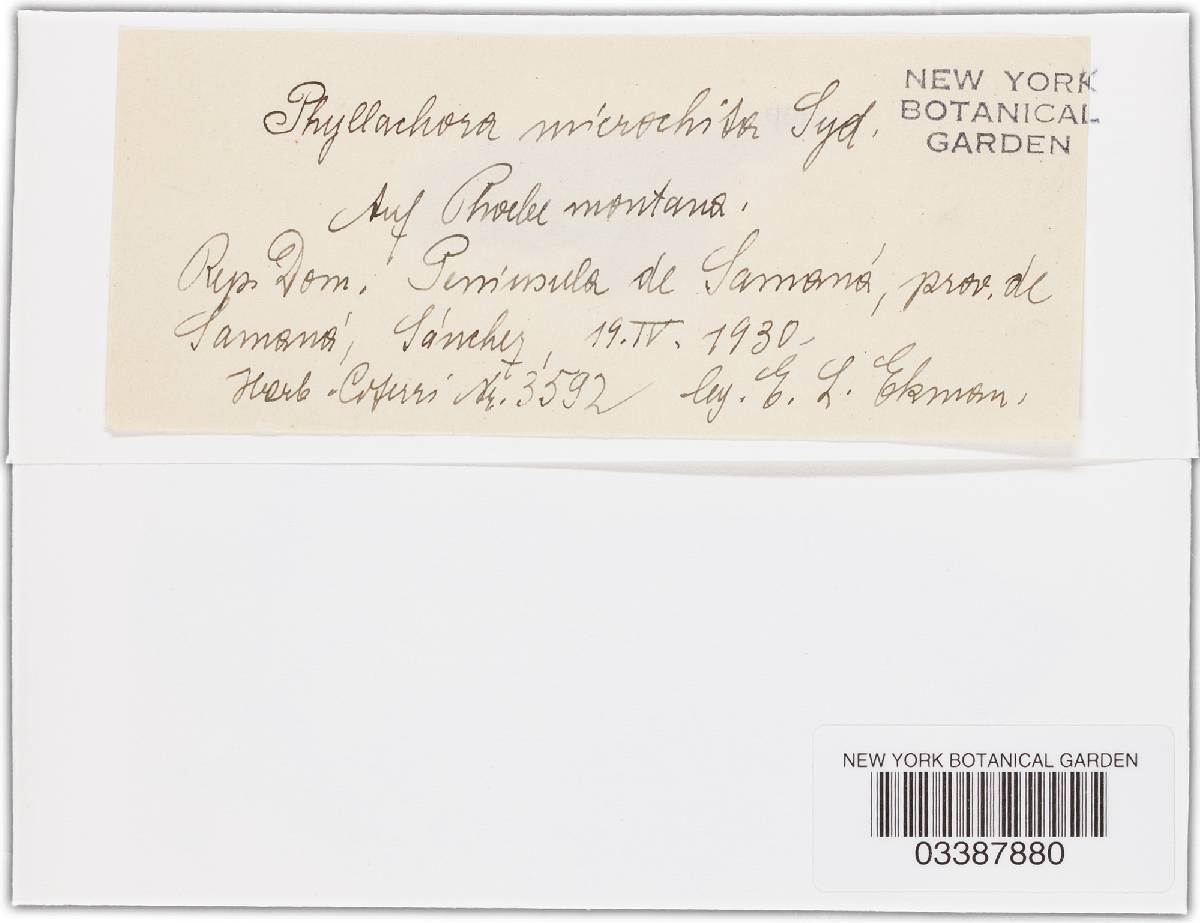 Phyllachora microchita Syd.
NEW YORK
BOTANICAL
GARDEN
Auf Phoebe montana.
Rep. Dom.: Peninsula de Samaná, prov. de
Samaná, Sánchez, 19.IV. 1930.
Herb. Ciferri Nr. 3592 leg. E. L. Ekman.
NEW YORK BOTANICAL GARDEN
03387880